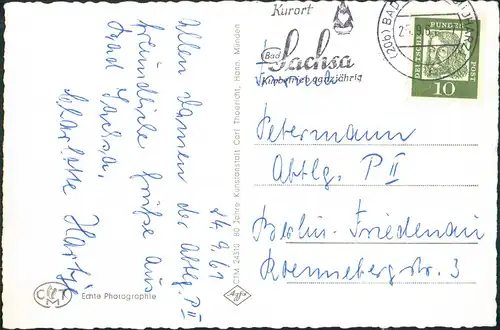 Kurort
Bad
Sachsa
Kurbetrieb ganzjährig
(20b) BAD
DEUTSCHE BUNDESPOST
10
14.9.61
Allen Damen der Abtlg. P II
freundliche Grüße aus
Bad Sachsa.
Charlotte
CTM 24310 80 Jahre Kunstanstalt Carl Thoericht, Hann. Münden
Agfa
CTM
Echte Photographie
Petermann
Abtlg. P II
Berlin-Friedenau
Roennebergstr. 3